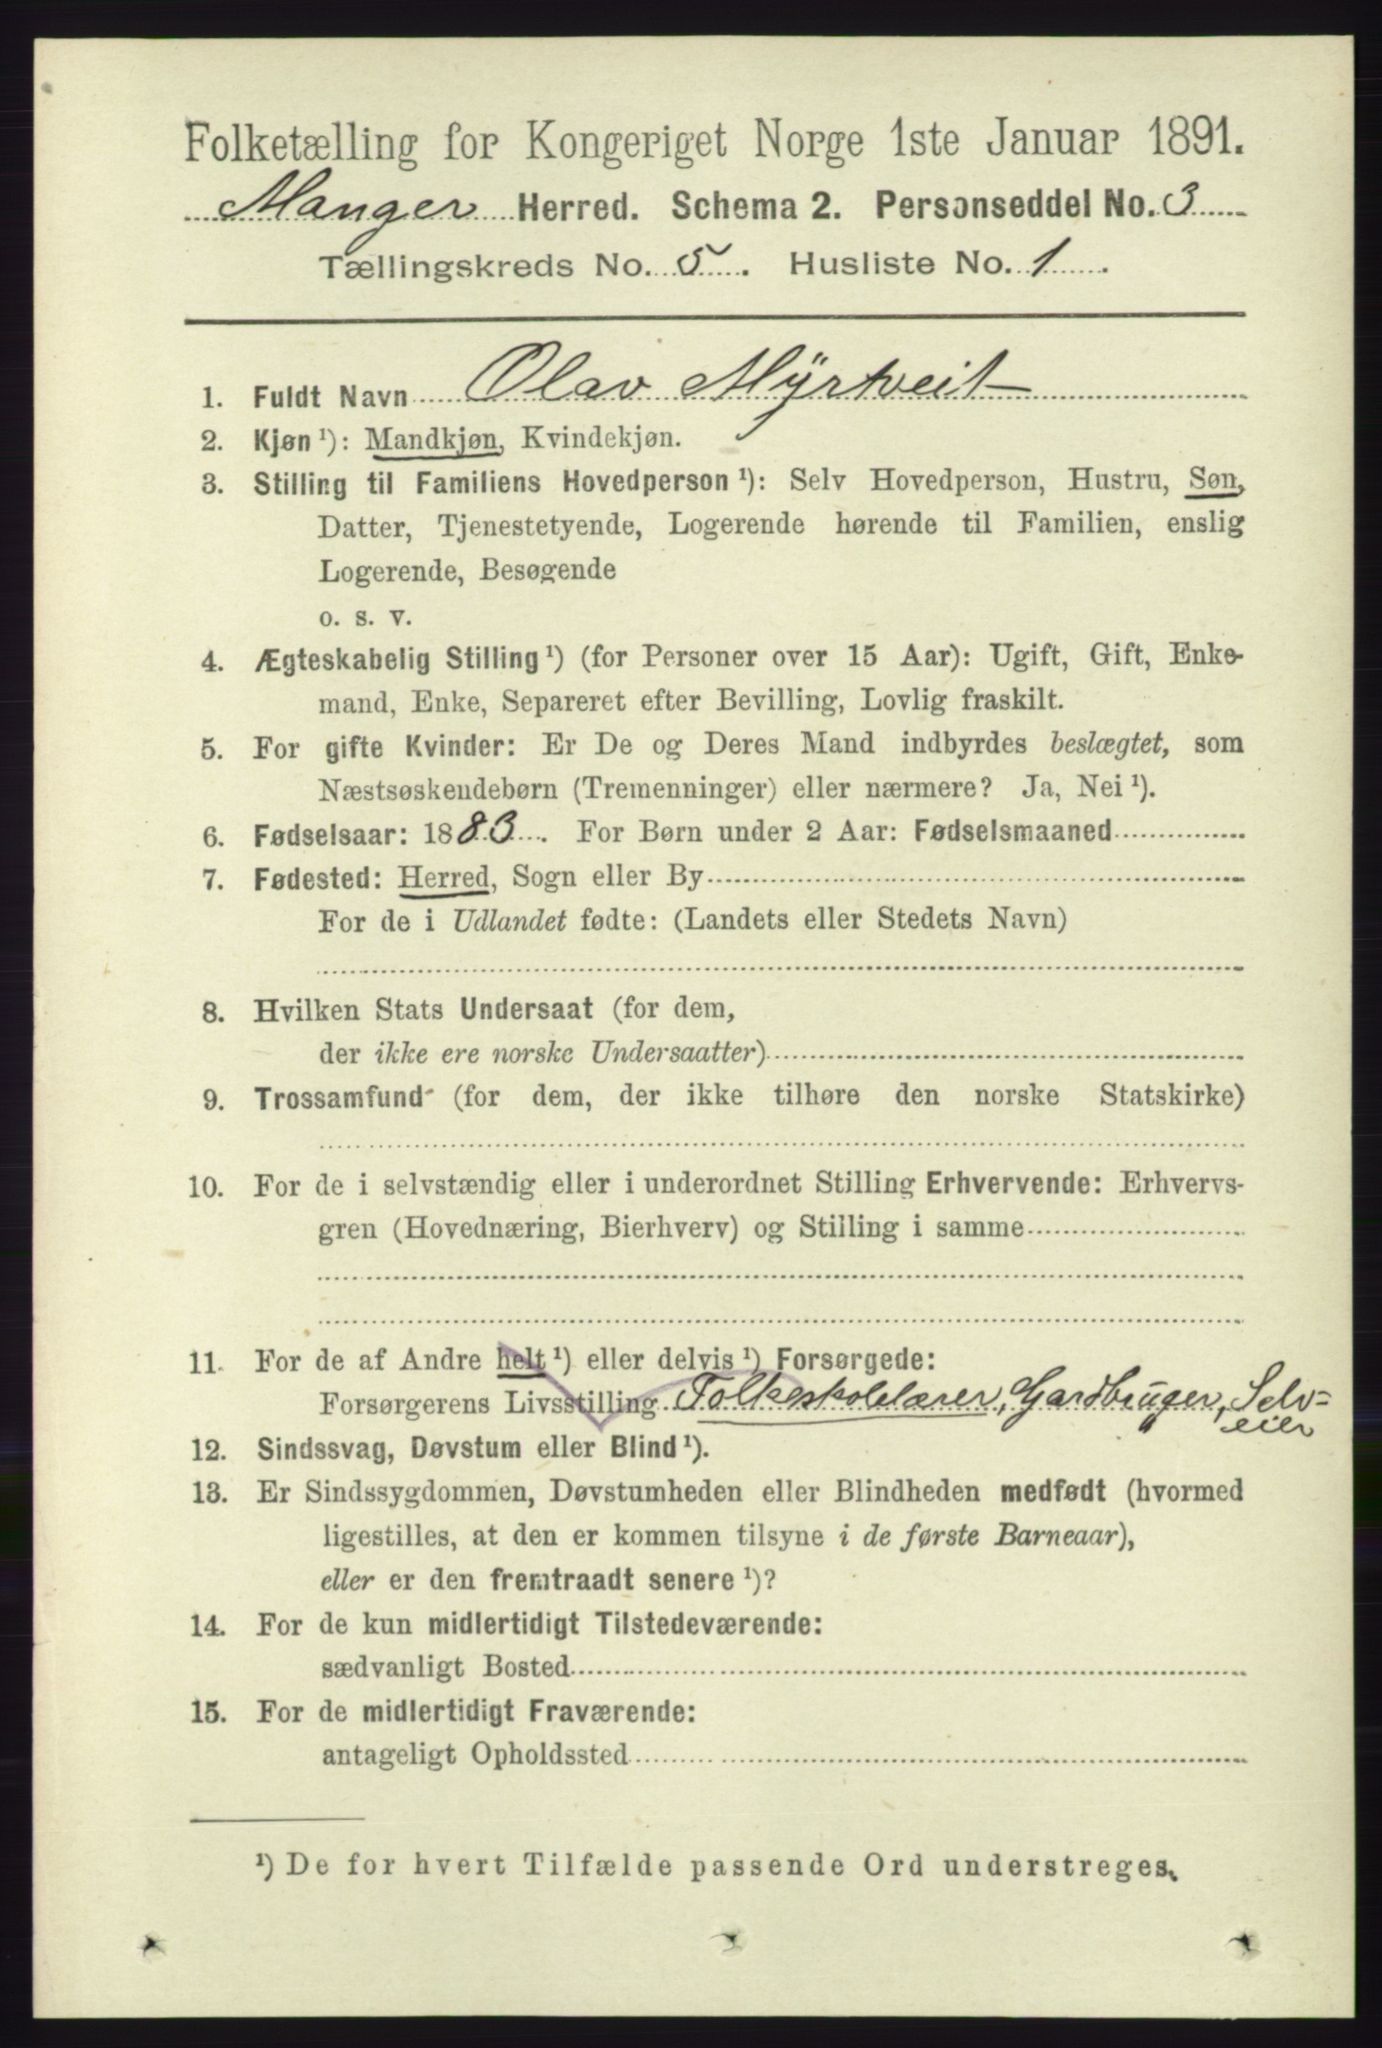 Folketælling for Kongeriget Norge 1ste Januar 1891.
Manger Herred. Schema 2. Personseddel No. 3
Tællingskreds No. 5. Husliste No. 1.
1. Fuldt Navn Olav Mÿrtveit
2. Kjøn¹): Mandkjøn, Kvindekjøn.
3. Stilling til Familiens Hovedperson¹): Selv Hovedperson, Hustru, Søn,
Datter, Tjenestetyende, Logerende hørende til Familien, enslig
Logerende, Besøgende
o. s. v.
4. Ægteskabelig Stilling¹) (for Personer over 15 Aar): Ugift, Gift, Enke-
mand, Enke, Separeret efter Bevilling, Lovlig fraskilt.
5. For gifte Kvinder: Er De og Deres Mand indbyrdes beslægtet, som
Næstsøskendebørn (Tremenninger) eller nærmere? Ja, Nei¹).
6. Fødselsaar: 1883. For Børn under 2 Aar: Fødselsmaaned
7. Fødested: Herred, Sogn eller By
For de i Udlandet fødte: (Landets eller Stedets Navn)
8. Hvilken Stats Undersaat (for dem,
der ikke ere norske Undersaatter)
9. Trossamfund (for dem, der ikke tilhøre den norske Statskirke)
10. For de i selvstændig eller i underordnet Stilling Erhvervende: Erhvervs-
gren (Hovednæring, Bierhverv) og Stilling i samme
11. For de af Andre helt¹) eller delvis¹) Forsørgede:
Forsørgerens Livsstilling Folkeskolelærer, Gardbruger, Selv=
eier
12. Sindssvag, Døvstum eller Blind¹).
13. Er Sindssygdommen, Døvstumheden eller Blindheden medfødt (hvormed
ligestilles, at den er kommen tilsyne i de første Barneaar),
eller er den fremtraadt senere¹)?
14. For de kun midlertidigt Tilstedeværende:
sædvanligt Bosted
15. For de midlertidigt Fraværende:
antageligt Opholdssted
¹) De for hvert Tilfælde passende Ord understreges.